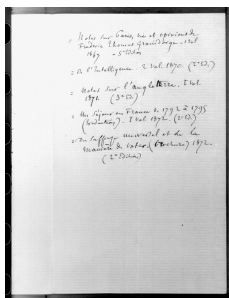 = Notes sur Paris, vie et opinions de
Frédéric Thomas Graindorge. 1 vol
1867 - 5e Edition
= De l'Intelligence. 2 vol. 1870. (2e Ed.)
= Notes sur l'Angleterre. 1 vol.
1872. (3e Ed.)
= Un Séjour en France de 1792 à 1795
(traduction). 1 vol. 1872. (2e Ed.)
= Du suffrage universel et de la
manière de voter. (brochure) 1872.
(2e Edition)